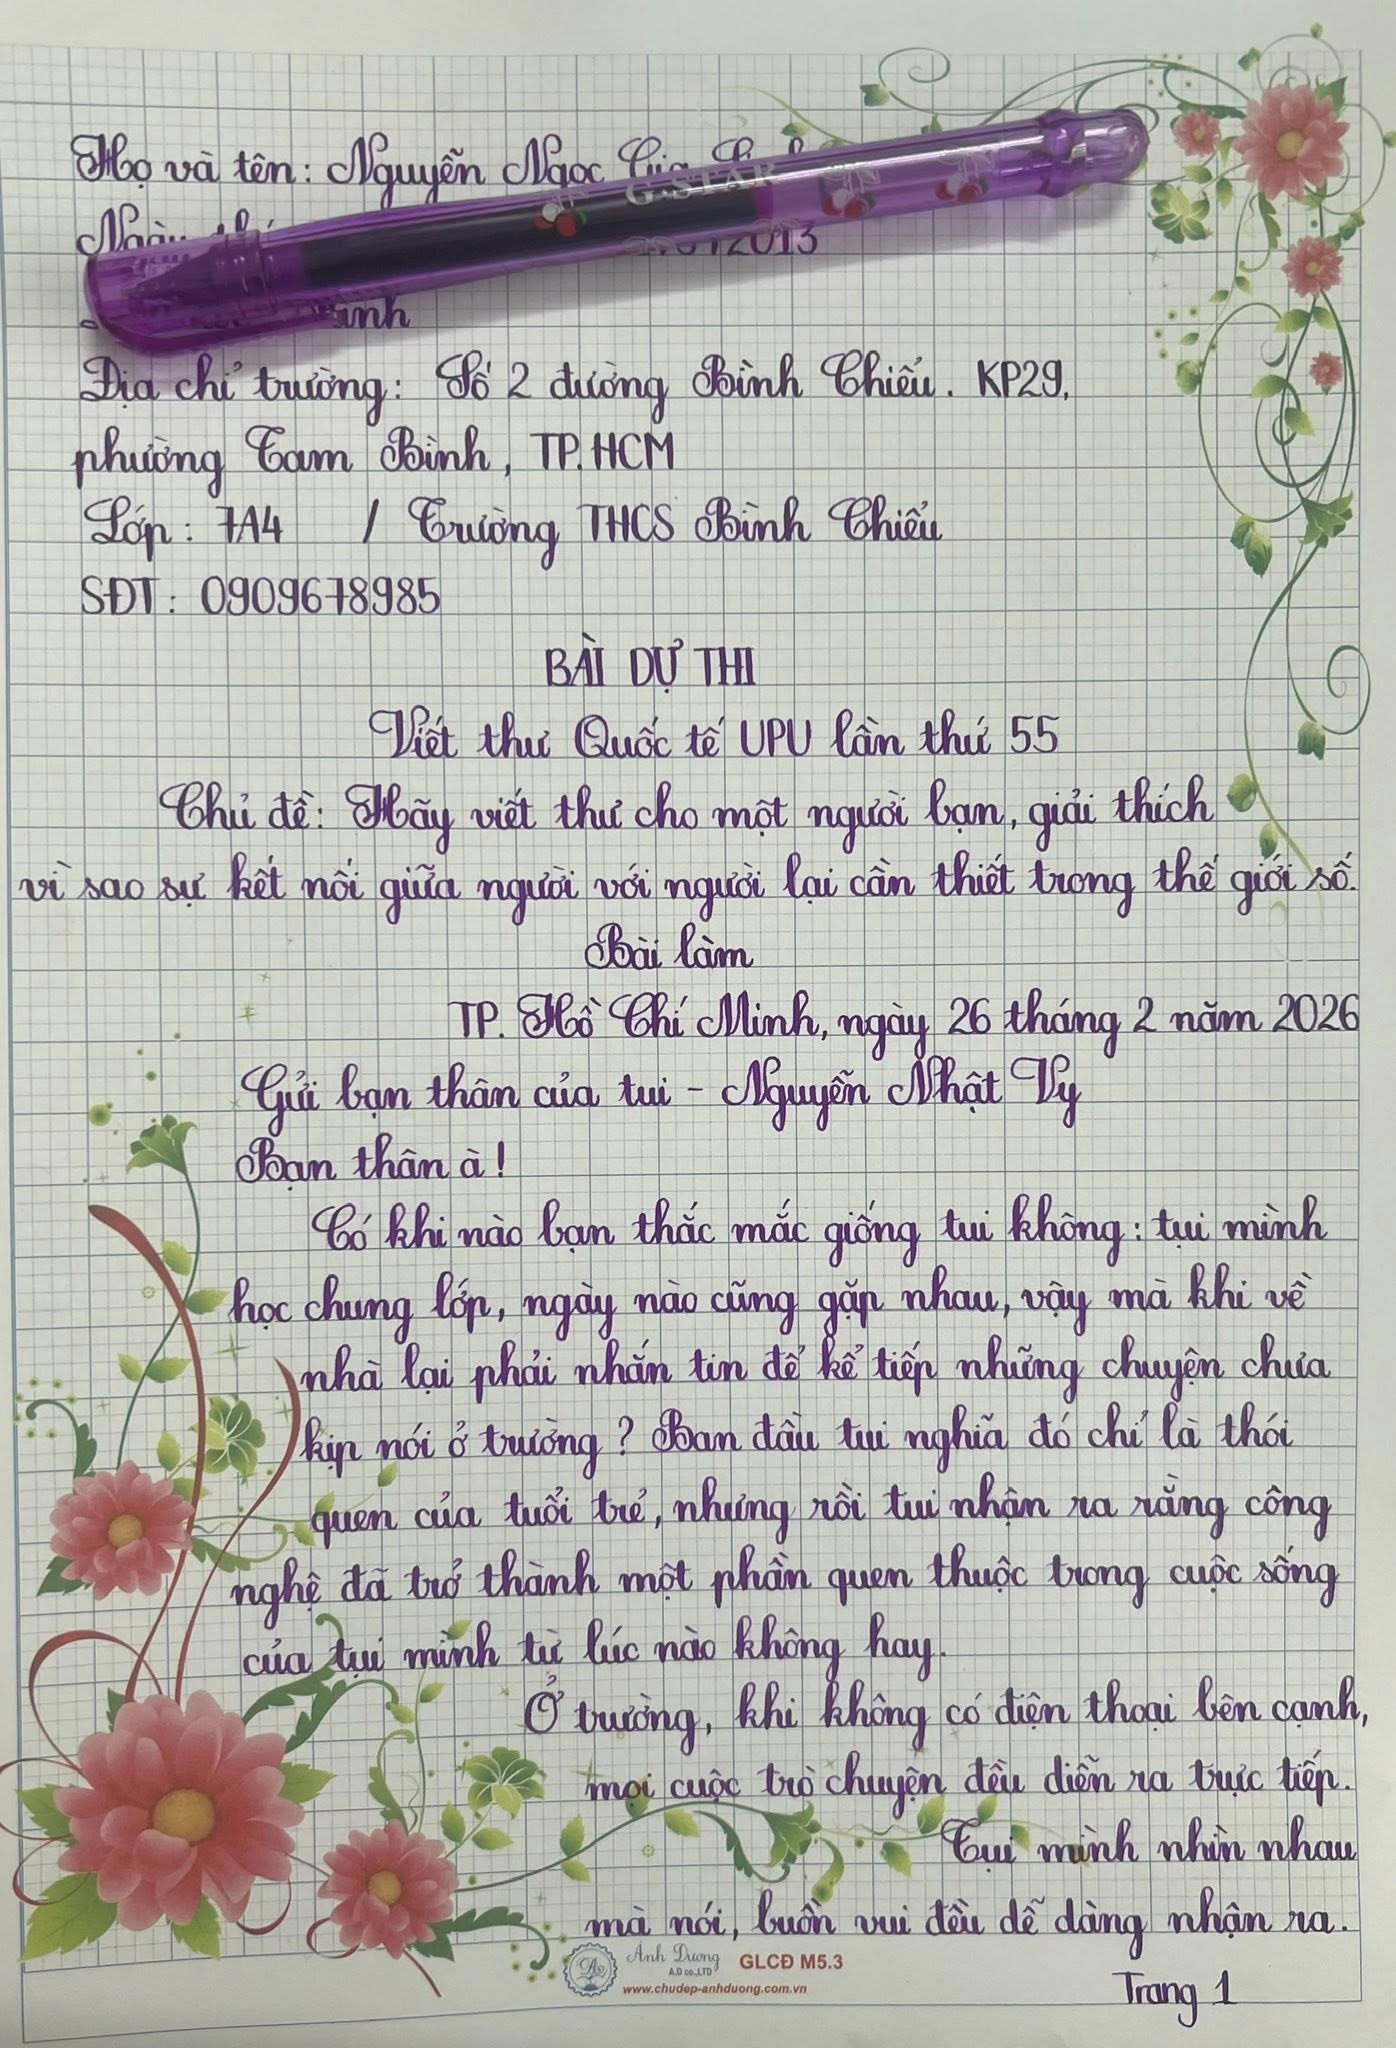 Họ và tên: Nguyễn Ngọc Gia
G-STAR
2013
Địa chỉ trường: Số 2 đường Bình Chiểu. KP29,
phường Tam Bình, TP. HCM
Lớp: 7A4 / Trường THCS Bình Chiểu
SĐT: 0909678985
BÀI DỰ THI
Viết thư Quốc tế UPU lần thứ 55
Chủ đề: Hãy viết thư cho một người bạn, giải thích
vì sao sự kết nối giữa người với người lại cần thiết trong thế giới số.
Bài làm
TP. Hồ Chí Minh, ngày 26 tháng 2 năm 2026
Gửi bạn thân của tui - Nguyễn Nhật Vy
Bạn thân à!
Có khi nào bạn thắc mắc giống tui không: tụi mình
học chung lớp, ngày nào cũng gặp nhau, vậy mà khi về
nhà lại phải nhắn tin để kể tiếp những chuyện chưa
kịp nói ở trường? Ban đầu tui nghĩ đó chỉ là thói
quen của tuổi trẻ, nhưng rồi tui nhận ra rằng công
nghệ đã trở thành một phần quen thuộc trong cuộc sống
của tụi mình từ lúc nào không hay.
Ở trường, khi không có điện thoại bên cạnh,
mọi cuộc trò chuyện đều diễn ra trực tiếp.
Tụi mình nhìn nhau
mà nói, buồn vui đều dễ dàng nhận ra.
Ánh Dương
A.D co.,LTD
GLCĐ M5.3
www.chudep-anhduong.com.vn
Trang 1